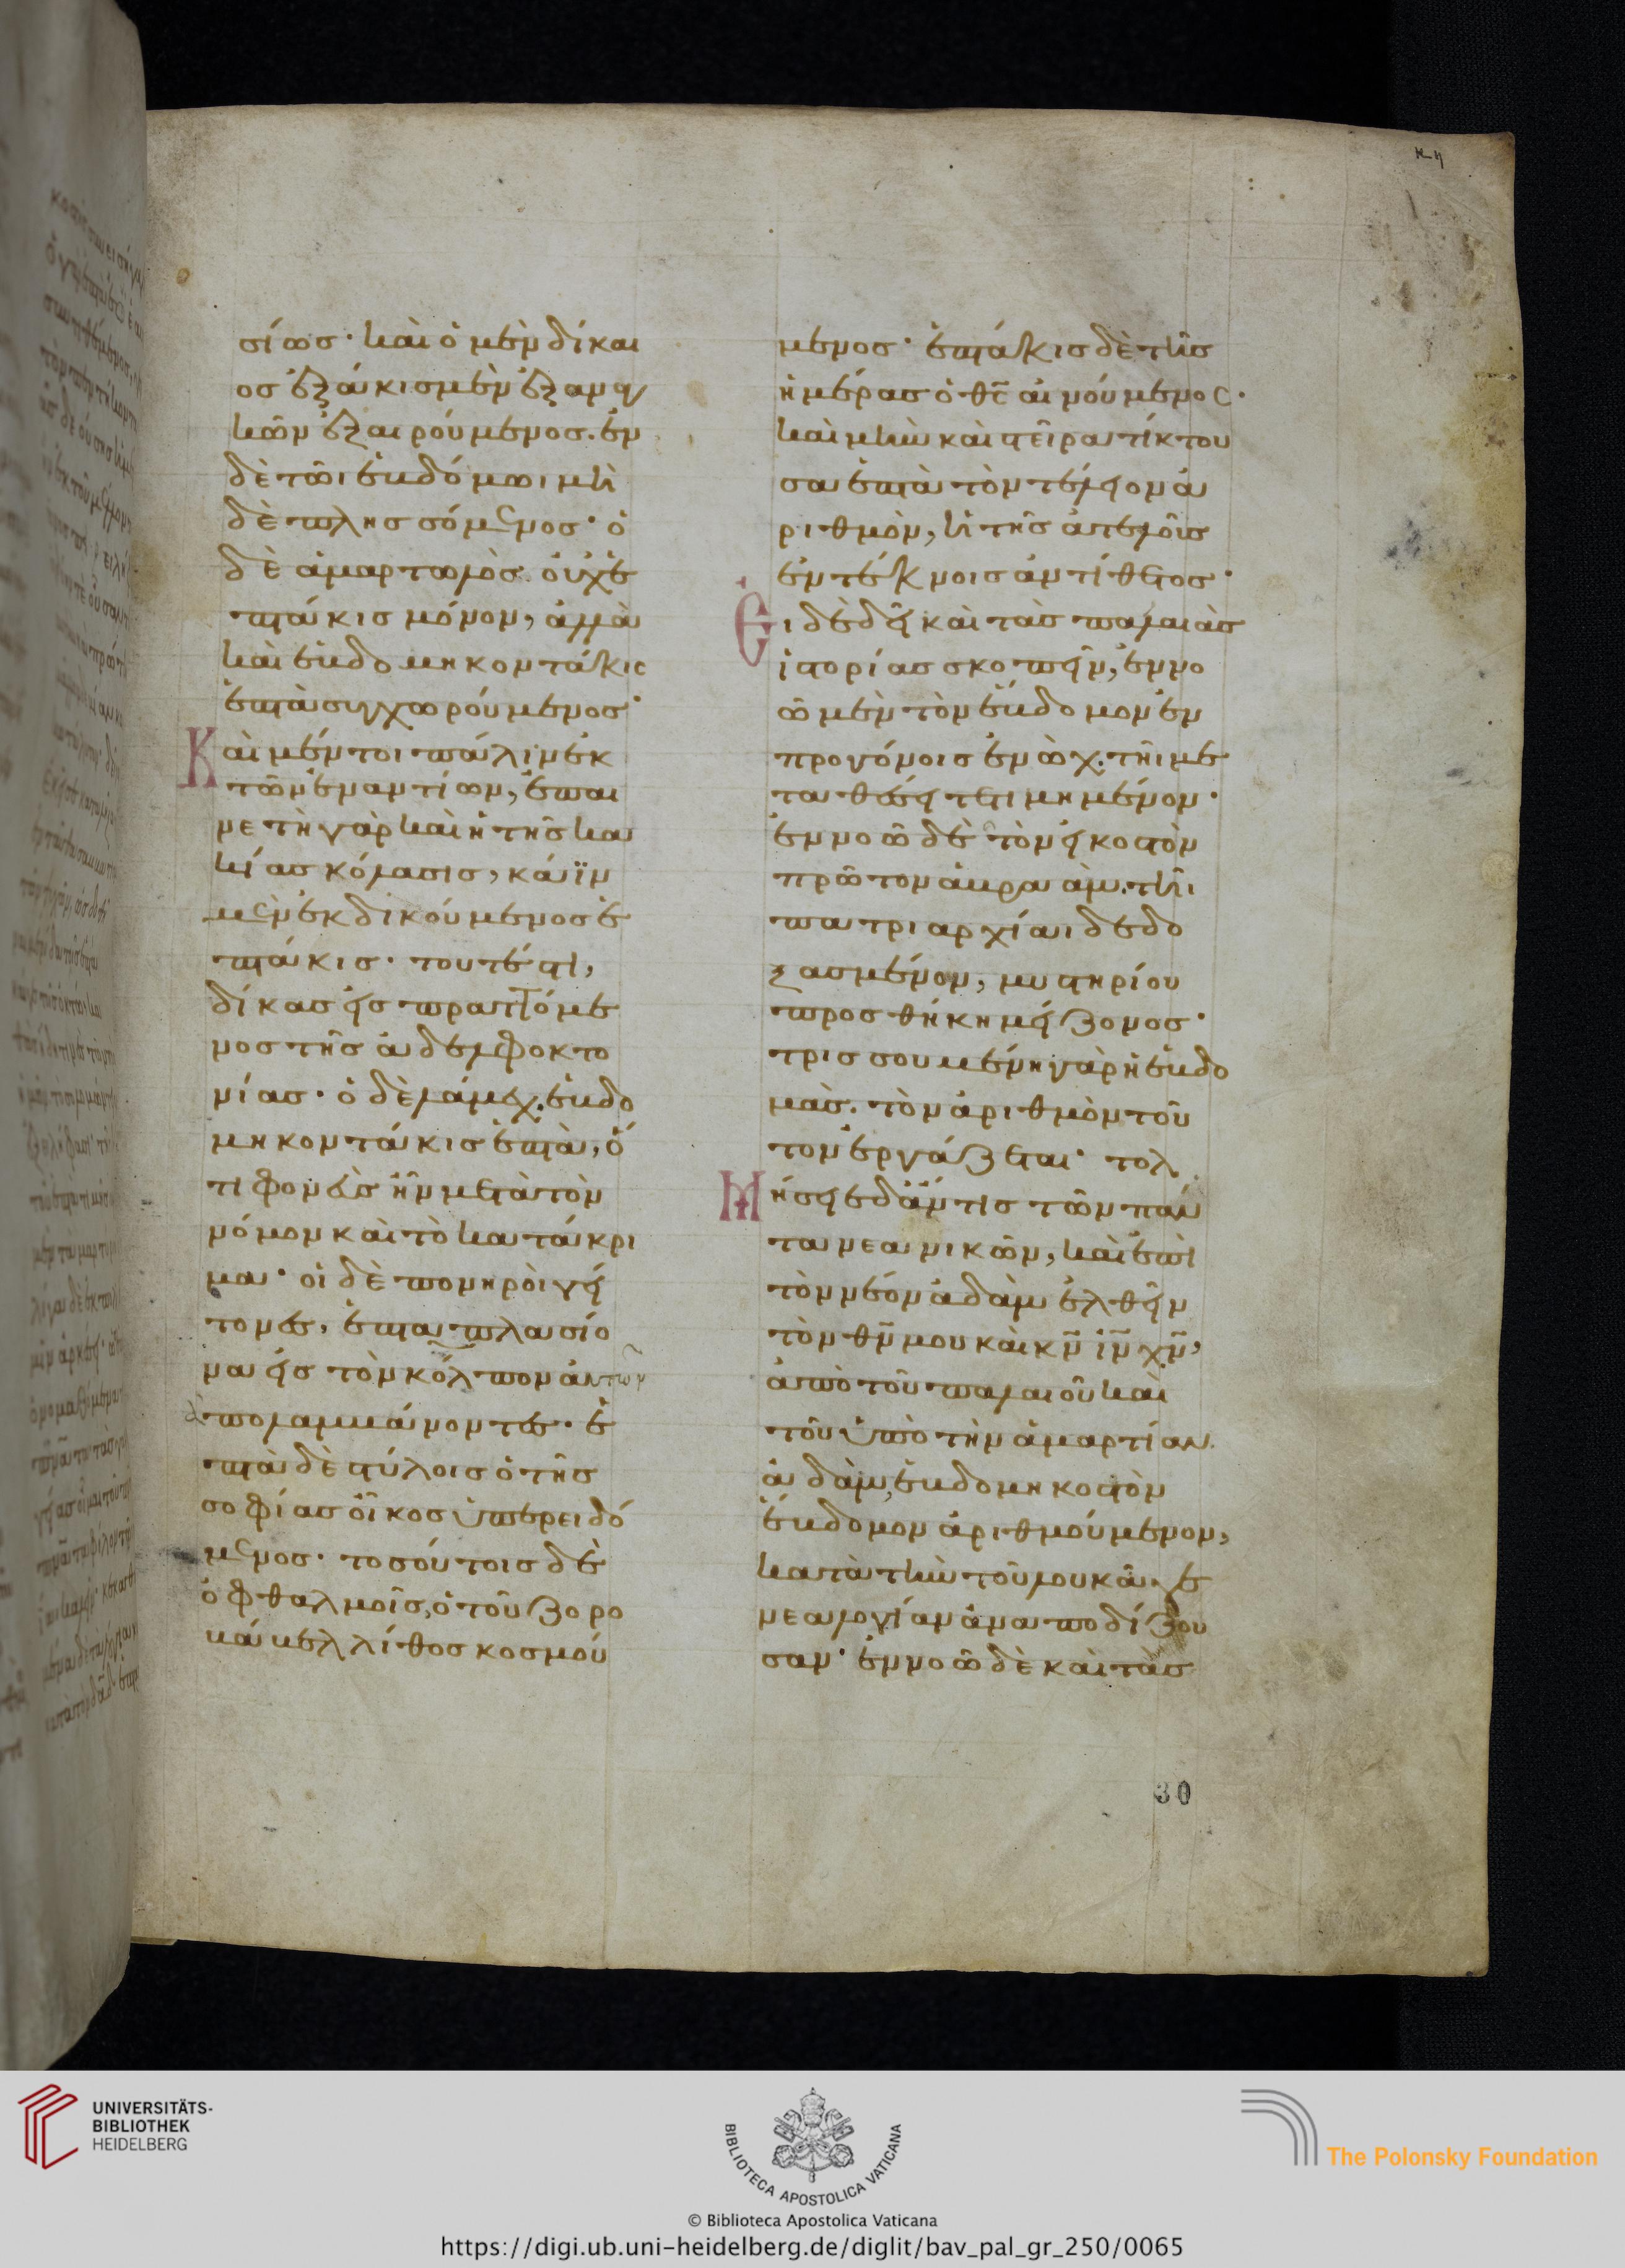 κη
σίωσ· καὶ ὁ μὲν δίκαι
οσ ἑξάκισ μὲν ἐξ ἀναγ
κῶν ἐξαιρούμενος. ἐν
δὲ τῶι ἑβδόμωι μὴ
δὲ πλησσόμενος· ὁ
δὲ ἁμαρτωλὸς. οὐχ ἑ
πτάκις μόνον, ἀλλὰ
καὶ ἑβδομηκοντάκις
ἑπτὰ συγχωρούμενος·
Καὶ μέντοι πάλιν ἐκ
τῶν ἐναντίων, ἐπαι
νετὴ γὰρ καὶ ἡ τῆς κα
κίας κόλασις, κάϊν
μὲν ἐκδικούμενος ἑ
πτάκις. τουτέστι,
δίκας εἰσπραττόμε
νος τῆς ἀδελφοκτο
νίας· ὁ δὲ λάμεχ. ἑβδο
μηκοντάκις ἑπτὰ, ὅ
τι φονεὺς ἦν μετὰ τὸν
νόμον καὶ τὸ κατάκρι
μα· οἱ δὲ πονηροὶ γεί
τονες, ἑπταπλασίο
να εἰς τὸν κόλπον αὐτῶν
ἀπολαμβάνοντες· ἑ
πτὰ δὲ στύλοις ὁ τῆς
σοφίας οἶκος ὑπερειδό
μενος· τοσούτοις δὲ
ὀφθαλμοῖς, ὁ τοῦ ζορο
βάβελ λίθος κοσμού
μενος· ἑπτάκις δὲ τῆς
ἡμέρας ὁ θς αἰνούμενος·
καὶ μὴν καὶ στεῖρα τίκτου
σα ἑπτὰ τὸν τέλειον ἀ
ριθμὸν, ἡ τῆς ἀτελοῦς
ἐν τέκνοις ἀντίθετος·
Εἰ δὲ δεῖ καὶ τὰς παλαιὰς
ἱστορίας σκοπεῖν, ἐννο
ῶ μὲν τὸν ἕβδομον ἐν
προγόνοις ἐνὼχ. τῆι με
ταθέσει τετιμημένον·
ἐννοῶ δὲ τὸν εἰκοστὸν
πρῶτον ἀβραάμ. τῆι
πατριαρχίαι δεδο
ξασμένον, μυστηρίου
προσθήκη μείζονος·
τρισσουμένη γὰρ ἡ ἑβδο
μὰς. τὸν ἀριθμὸν τοῦ
τον ἐργάζεται· τολ
Μήσειε δ' ἄν τις τῶν πάν
τα νεανικῶν, καὶ ἐπὶ
τὸν νέον ἀδὰμ ἐλθεῖν
τὸν θν μου καὶ κν ιν χν,
ἀπὸ τοῦ παλαιοῦ καὶ
τοῦ ὑπὸ τὴν ἁμαρτίαν
ἀδὰμ, ἑβδομηκοστὸν
ἕβδομον ἀριθμούμενον,
κατὰ τὴν τοῦ λουκᾶ γε
νεαλογίαν ἀναποδίζου
σαν· ἐννοῶ δὲ καὶ τὰς
30
UNIVERSITÄTS-
BIBLIOTHEK
HEIDELBERG
BIBLIOTECA APOSTOLICA VATICANA
The Polonsky Foundation
© Biblioteca Apostolica Vaticana
https://digi.ub.uni-heidelberg.de/diglit/bav_pal_gr_250/0065